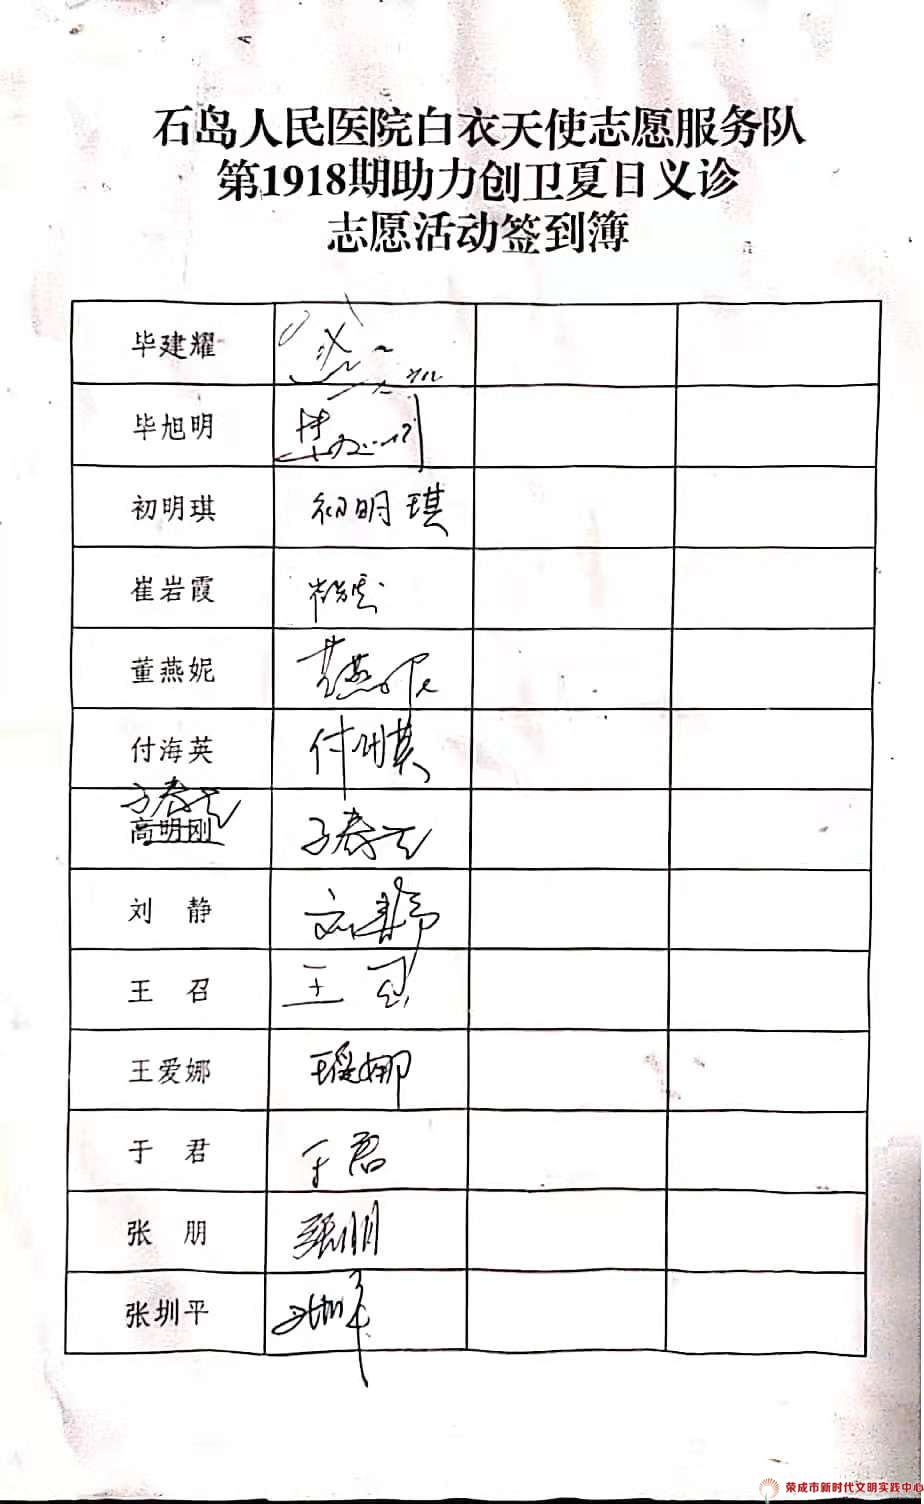 石岛人民医院白衣天使志愿服务队
第1918期助力创卫夏日义诊
志愿活动签到簿
毕建耀
毕旭明
初明琪 初明琪
崔岩霞 崔岩霞
董燕妮 董燕妮
付海英 付海英
高明刚
刘 静 刘静
王 召 王召
王爱娜 王爱娜
于 君 于君
张 朋 张朋
张圳平 张圳平
荣成市新时代文明实践中心